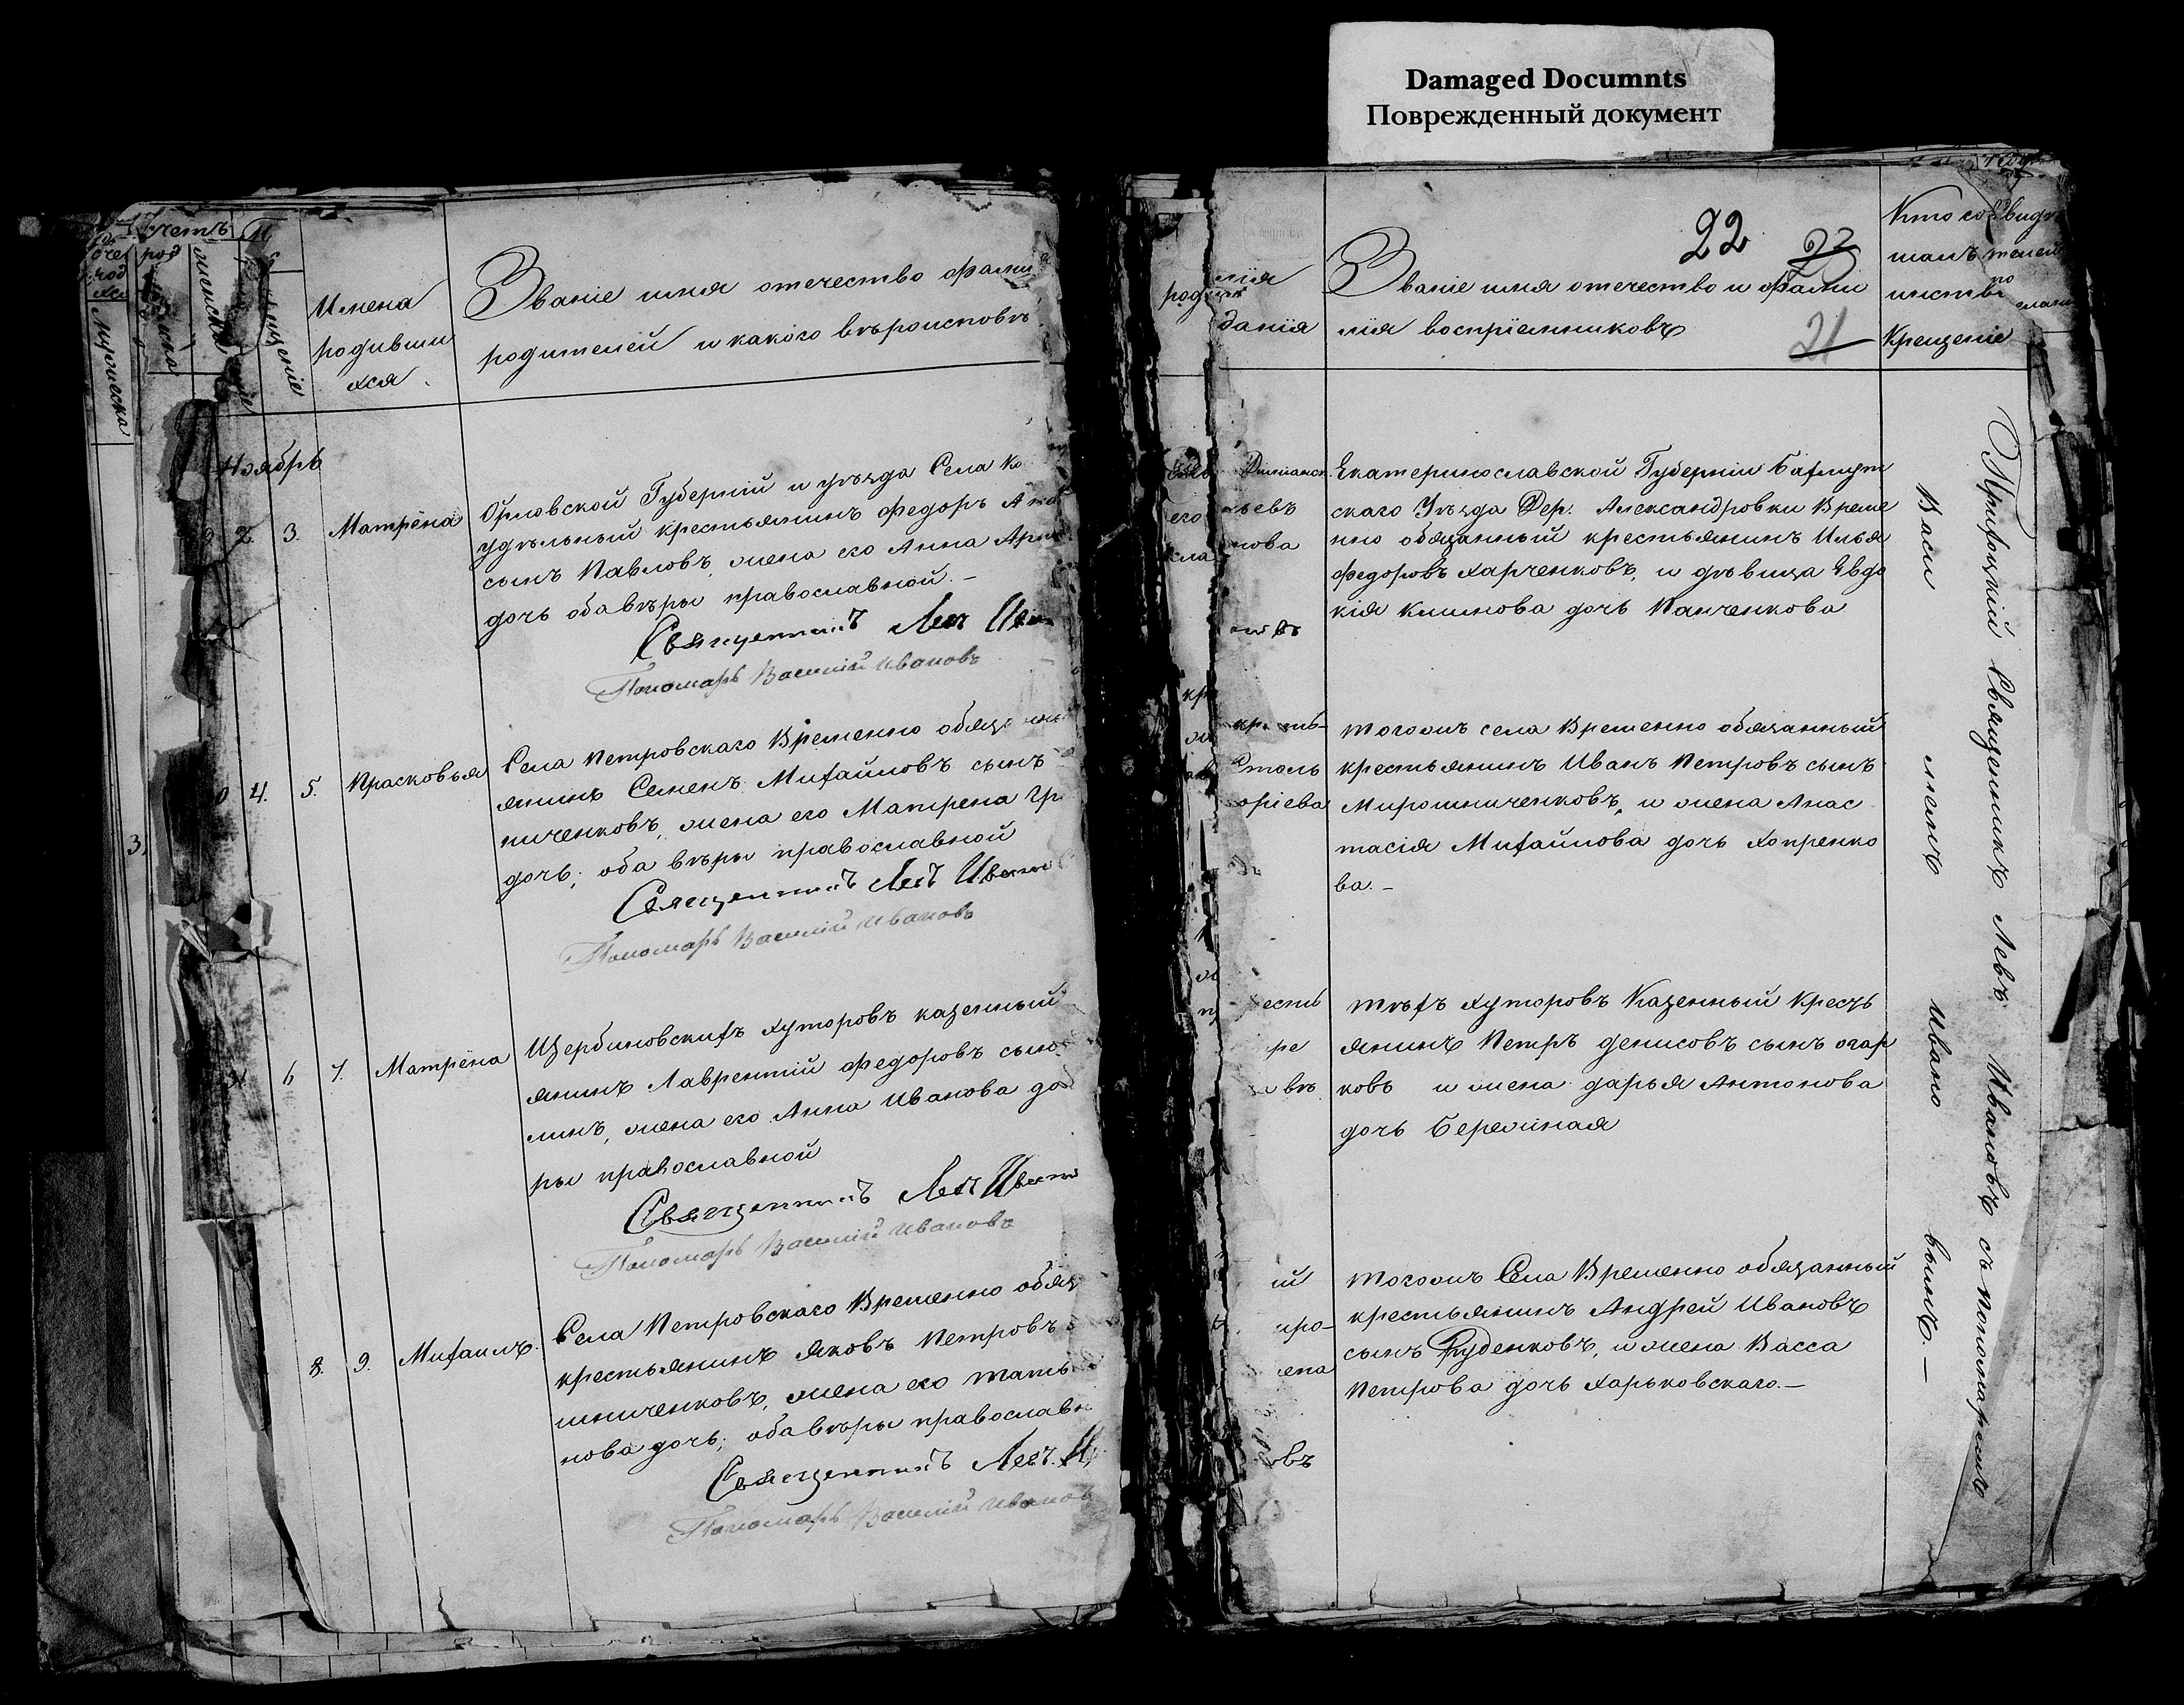 Damaged Documnts
Поврежденный документ
Имена
родивши
хся.
Званіе имя отечество фами
родителей и какого вѣроисповѣ
Ноябрь
2. 3. Матрёна
Орловской Губерній и уѣзда Села
удѣльный крестьянинъ Федоръ
сынъ Павловъ, жена его Анна
дочь оба вѣры православной. –
Священникъ Левъ
Пономарь Василій Ивановъ
4. 5. Прасковья
Села Петровскаго Временно обяз
янинъ Семенъ Михайловъ сынъ
ниченковъ, жена его Матрена Гр
дочь; оба вѣры православной
Священникъ Левъ Иван
Пономарь Василій Ивановъ
3
6 7. Матрёна
Щербиновскихъ хуторовъ казенный
янинъ Лаврентій Федоровъ сынъ
линъ, жена его Анна Иванова до
ры православной
Священникъ Левъ Иван
Пономарь Василій Ивановъ
8. 9. Михаилъ.
Села Петровскаго Временно обяз
крестьянинъ Яковъ Петровъ
шниченковъ, жена его Тать
нова дочь; оба вѣры православн
Священникъ Левъ. И
Пономарь Василій Иванов
22
22
лія
данія
Званіе имя отечество и фами
лія воспріемниковъ
21
Кто со
шалъ
инство
Крещеніе
Екатеринославской Губерніи Бахмут
скаго Уѣзда Дер. Александровки Време
нно обязанный крестьянинъ Илья
Федоровъ Харченковъ, и дѣвица Евдо
кія Климова дочь Панченкова
тогожъ села Временно обязанный
крестьянинъ Иванъ Петровъ сынъ
Мирошниченковъ, и жена Анас
тасія Михайлова дочь Хопренко
ва. –
тѣхъ хуторовъ Казенный Кресть
янинъ Петръ Денисовъ сынъ
ковъ и жена Дарья Антонова
дочь Бережная
тогожъ Села Временно обязанный
крестьянинъ Андрей Ивановъ
сынъ Руденковъ, и жена Васса
Петрова дочь Харьковскаго. –
Приходскій Священникъ Левъ Ивановъ съ пономаремъ
Васи ліемъ Ивано вымъ. –